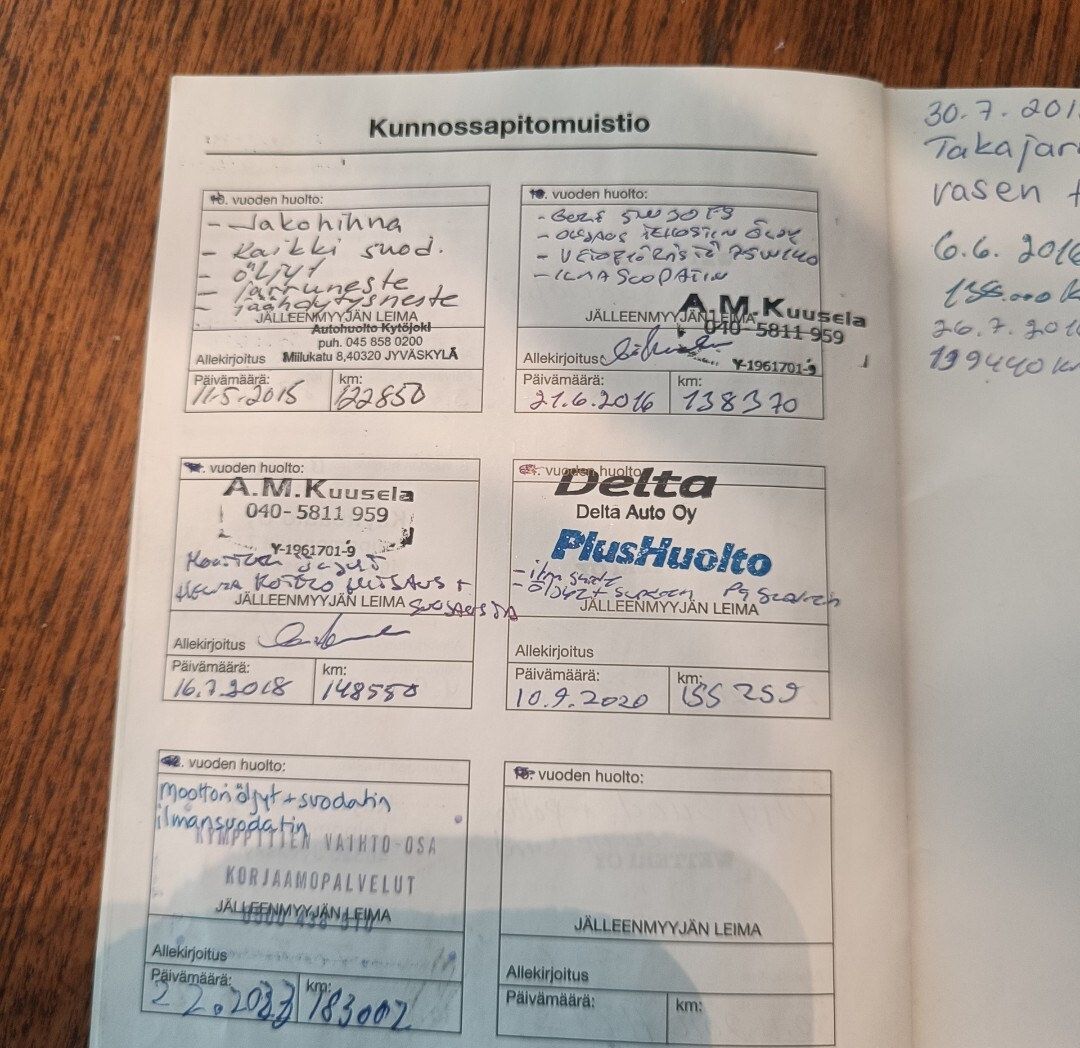 Kunnossapitomuistio
vuoden huolto:
- Jakohihna
- Kaikki suod.
- öljyt
- jarruneste
- jäähdytysneste
JÄLLEENMYYJÄN LEIMA
Autohuolto Kytöjoki
puh. 045 858 0200
Miilukatu 8,40320 JYVÄSKYLÄ
Allekirjoitus
Päivämäärä:
km:
11.5.2015
122850
vuoden huolto:
5W30
ÖLJY
- 75W140
- ILMASUODATIN
JÄLLEENMYYJÄN LEIMA
A.M.Kuusela
040-5811 959
Y-1961701-9
Allekirjoitus
Päivämäärä:
km:
21.6.2016
138370
vuoden huolto:
A.M.Kuusela
040-5811 959
Y-1961701-9
JÄLLEENMYYJÄN LEIMA
Allekirjoitus
Päivämäärä:
km:
16.7.2018
148550
vuoden huolto:
Delta
Delta Auto Oy
PlusHuolto
JÄLLEENMYYJÄN LEIMA
Allekirjoitus
Päivämäärä:
km:
10.9.2020
155 259
vuoden huolto:
moottoriöljyt + suodatin
ilmansuodatin
KYMPPITIEN VAIHTO-OSA
KORJAAMOPALVELUT
JÄLLEENMYYJÄN LEIMA
Allekirjoitus
Päivämäärä:
km:
183002
vuoden huolto:
JÄLLEENMYYJÄN LEIMA
Allekirjoitus
Päivämäärä:
km:
30.7.201
Takajar
vasen
6.6. 2016
26.7. 201
139440 km